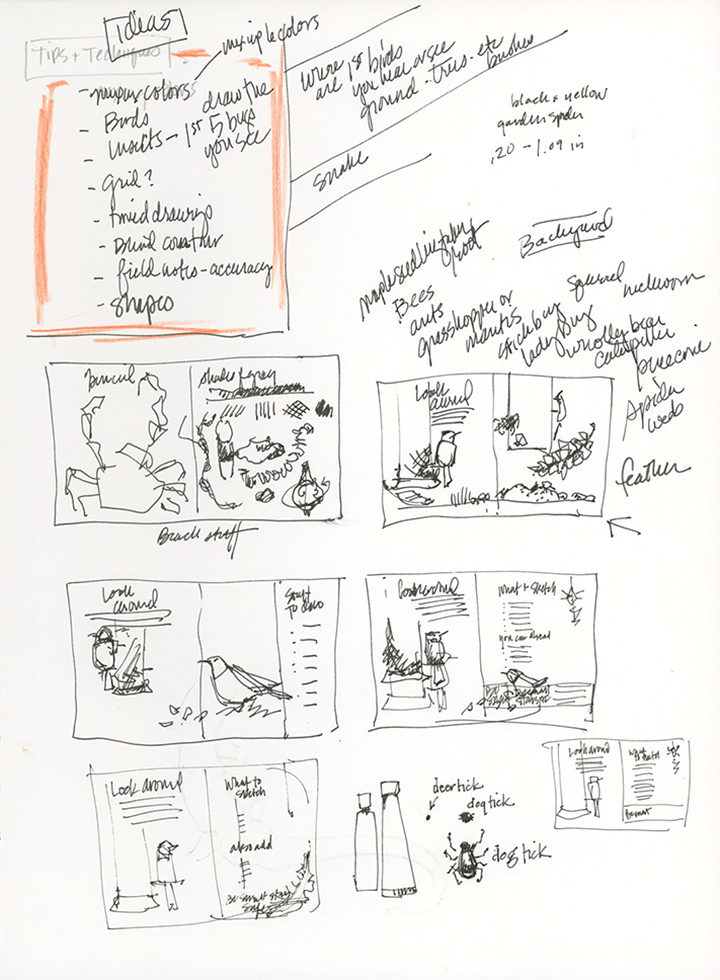 ideas
Tips + Techniques
mixing colors
- mixing colors
- Birds
- Insects - draw the
1st 5 bugs
you see
- grid?
- timed drawings
- Blind contour
- field notes - accuracy
- shapes
where 1st birds
are you hear or see
ground - trees - etc
bushes
snake
black + yellow
garden spider
.20 - 1.09 in
Backyard
maple seed
Bees
ants
grasshopper or
mantis
stick bug
lady bug
squirrel
wholly bear
catapiller
pinecone
spider
webs
feather
pencil
shades of gray
Beach stuff
Look
around
Look
around
Stuff
to draw
Look around
What to sketch
you can add
Look around
What to
sketch
also add
Be smart stay
safe
deer tick
dog tick
dog tick
Look around
What
to sketch